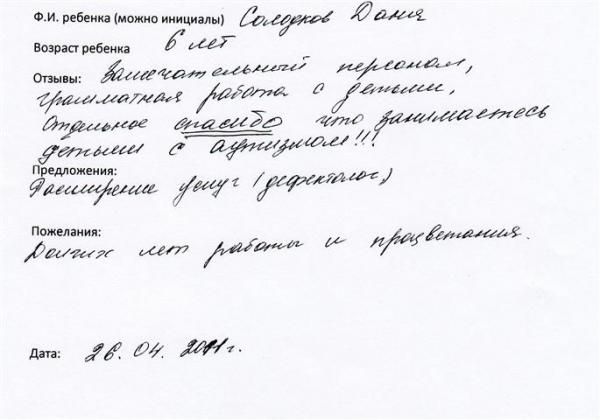 Ф.И. ребенка (можно инициалы) Солодков Даня
Возраст ребенка 6 лет
Отзывы: Замечательный персонал,
грамматная работа с детьми,
отдельное спасибо что занимаетесь
детьми с аутизмом!!!
Предложения:
Расширение услуг (дефектолог)
Пожелания:
Долгих лет работы и процветания.
Дата: 26.04.2011г.